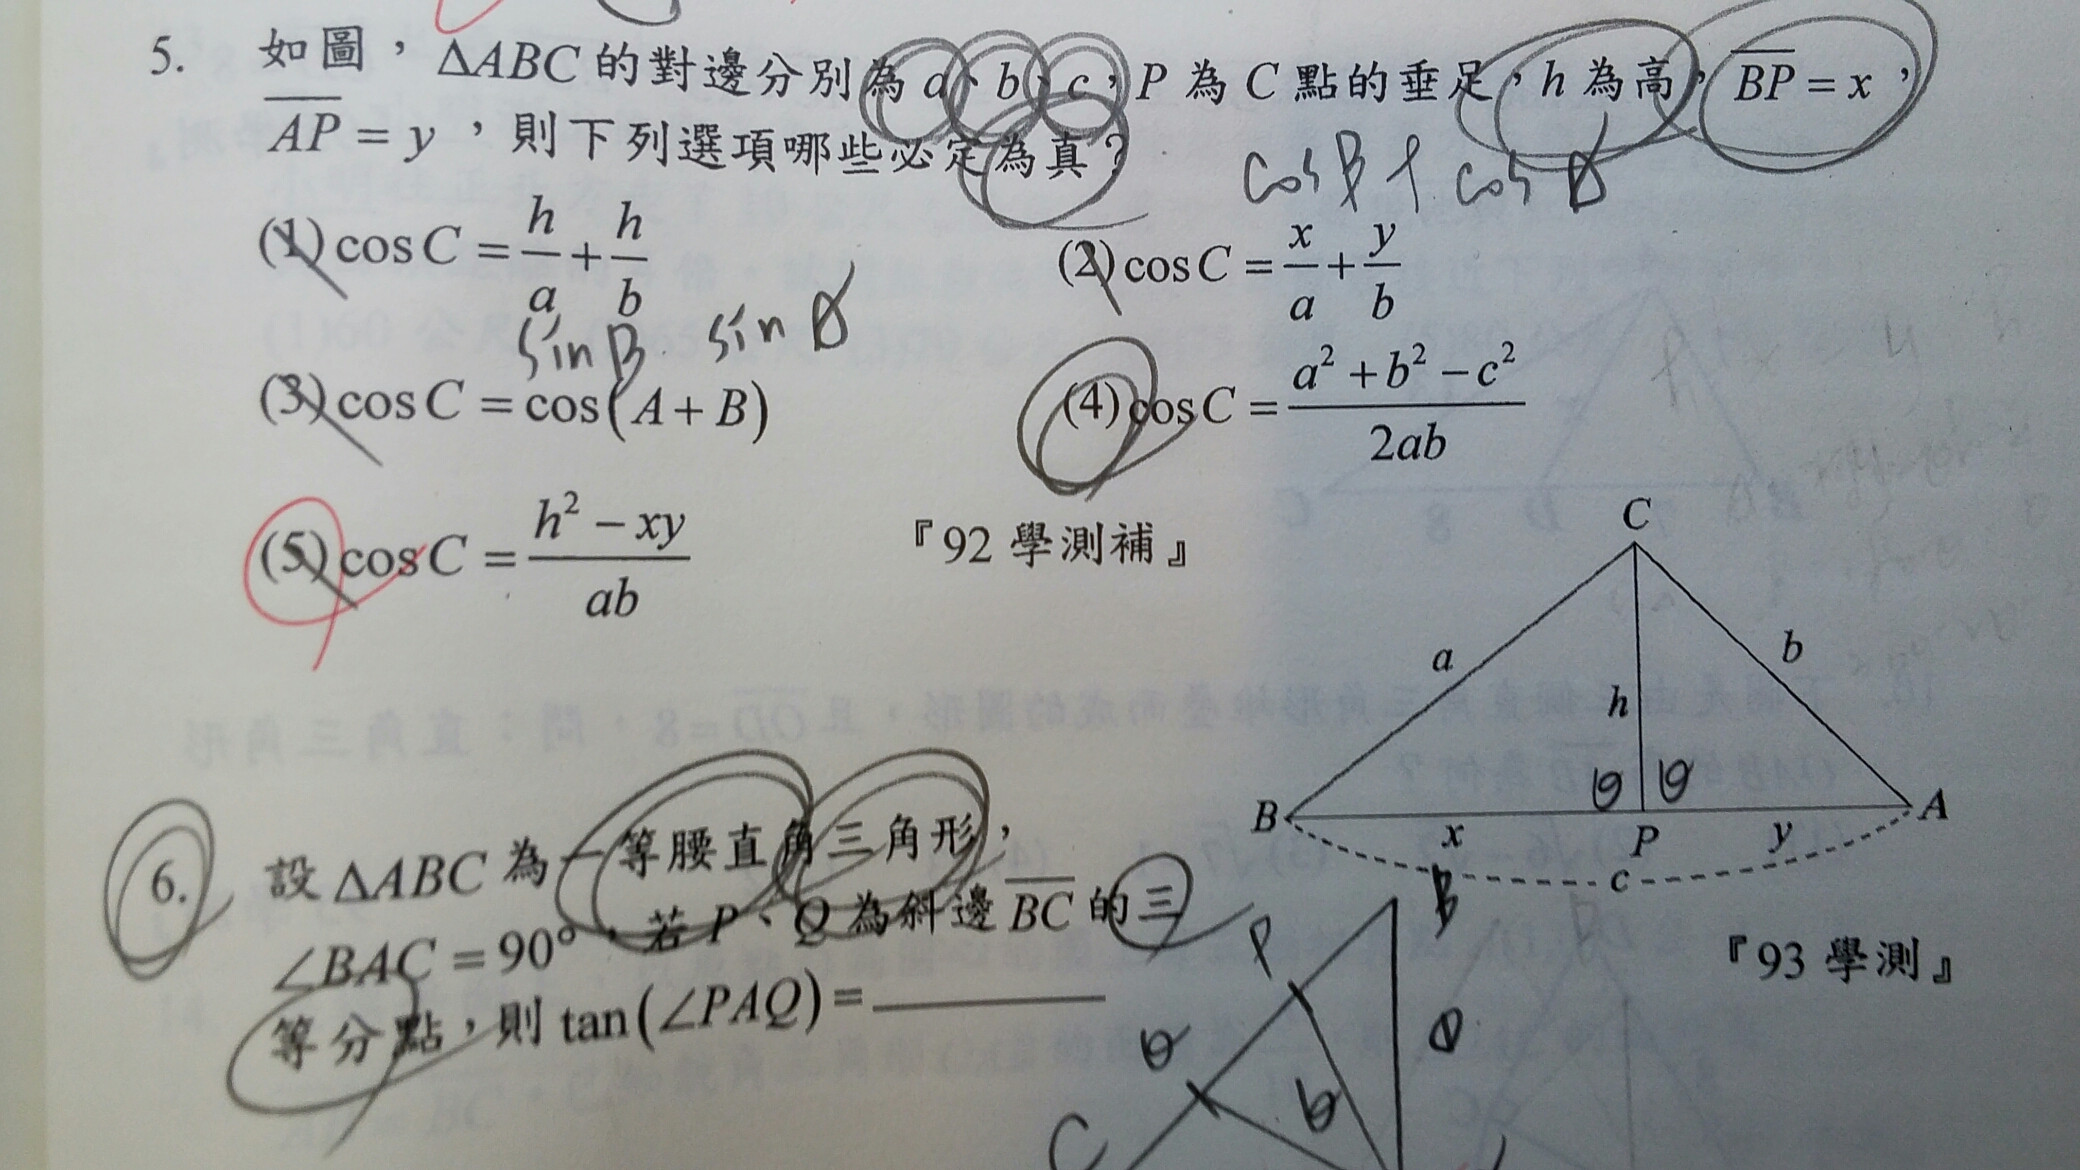 5. 如圖，ΔABC 的對邊分別為 a、b、c，P 為 C 點的垂足，h 為高，BP = x，
AP = y，則下列選項哪些必定為真？
cosB + cos
(1) cos C = h/a + h/b
(2) cos C = x/a + y/b
sinB sin
(3) cos C = cos(A + B)
(4) cos C = (a² + b² − c²)/2ab
(5) cos C = (h² − xy)/ab
『92 學測補』
C
a
b
h
θ θ
B
x
P
y
A
c
6. 設 ΔABC 為一等腰直角三角形，
∠BAC = 90°，若 P、Q 為斜邊 BC 的三
等分點，則 tan(∠PAQ) =
『93 學測』
B
P
θ
C